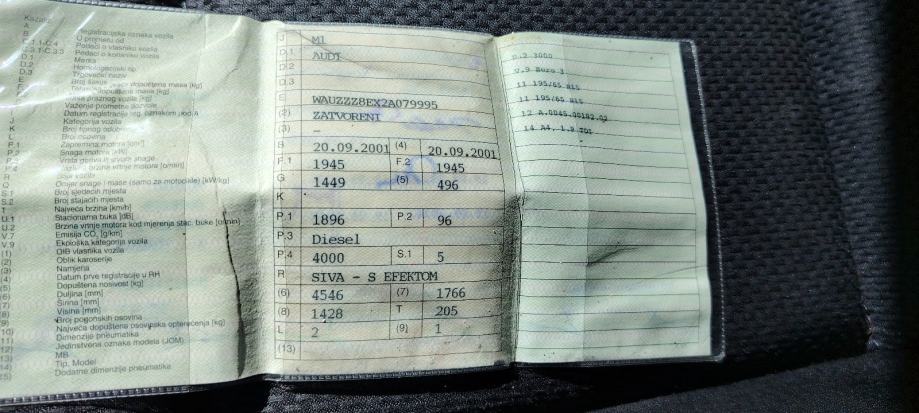 Registracijska oznaka vozila
U prometu od
C.1.1-C.4 Podaci o vlasniku vozila
C.3.1-C.3.3 Podaci o korisniku vozila
D.1 Marka
D.2 Homologacijski tip
D.3 Trgovački naziv
Važenje prometne dozvole
Kategorija vozila
K
L Broj osovina
P.1
P.2 Snaga motora [kW]
R
Q Omjer snage i mase (samo za motocikle) [kW/kg]
S.1 Broj sjedećih mjesta
S.2 Broj stajaćih mjesta
T Najveća brzina [km/h]
U.1 Stacionarna buka [dB]
U.2 Brzina vrtnje motora kod mjerenja stac. buke [o/min]
V.7 Emisija CO₂ [g/km]
V.9 Ekološka kategorija vozila
(1) OIB vlasnika vozila
(2) Oblik karoserije
(3) Namjena
(4) Datum prve registracije u RH
(5) Dopuštena nosivost [kg]
(6) Duljina [mm]
(7) Širina [mm]
(8) Visina [mm]
(9) Broj pogonskih osovina
(10) Najveća dopuštena osovinska opterećenja [kg]
(11) Dimenzije pneumatika
(12) Jedinstvena oznaka modela (JOM)
(13) MB
(14) Tip, Model
(15) Dodatne dimenzije pneumatika
J M1
D.1 AUDI
D.2
D.3
WAUZZZ8EX2A079995
(2) ZATVORENI
(3) -
B 20.09.2001 (4) 20.09.2001
F.1 1945 F.2 1945
G 1449 (5) 496
K
P.1 1896 P.2 96
P.3 Diesel
P.4 4000 S.1 5
R SIVA - S EFEKTOM
(6) 4546 (7) 1766
(8) 1428 T 205
L 2 (9) 1
(13)
U.2 3000
V.9 Euro 3
11 195/65 R15
11 195/65 R15
12 A.0045.00182.02
14 A4, 1.9 TDI